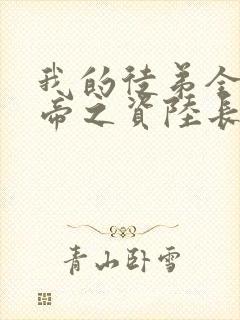 我的徒弟全
帝之資陸長
青山卧雪